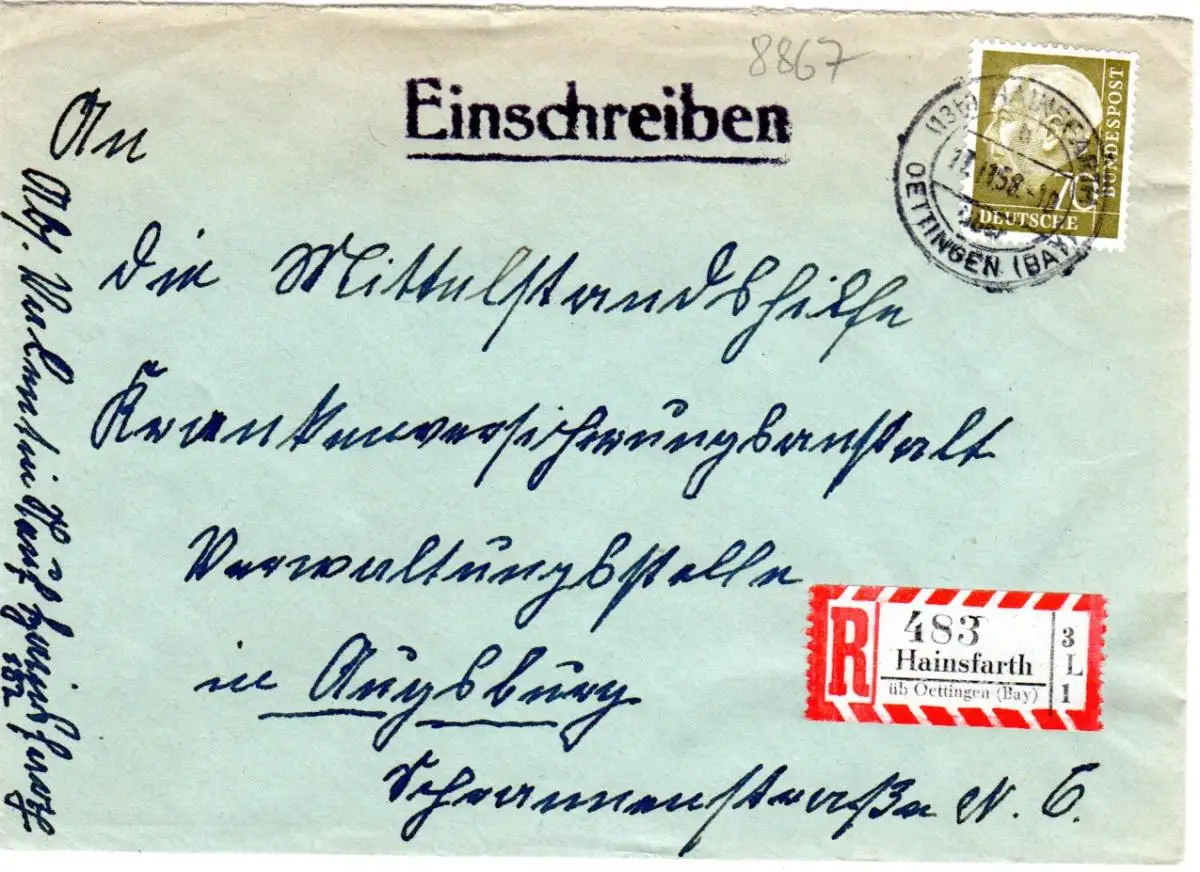 8867
Einschreiben
BUNDESPOST
70
DEUTSCHE
(13b) HAINSFARTH
58.-10
OETTINGEN (BAY)
An
die Mittelstandshilfe
Krankenversicherungsanstalt
Verwaltungsstelle
in Augsburg
Schrannenstraße N. 6.
R
483
Hainsfarth
üb Oettingen (Bay)
3
L
1
Abs. Valentin Hainsfarth
182